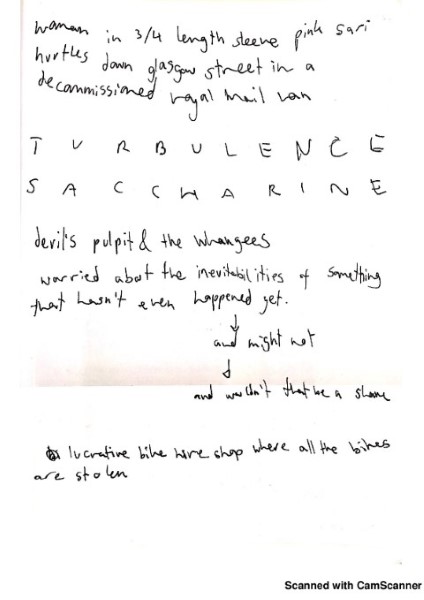 woman in 3/4 length sleeve pink sari
hurtles down glasgow street in a
decommissioned royal mail van
T U R B U L E N C E
S A C C H A R I N E
devil's pulpit & the whangees
worried about the inevitabilities of something
that hasn't even happened yet.
and might not
and wouldn't that be a shame
lucrative bike hire shop where all the bikes
are stolen
Scanned with CamScanner